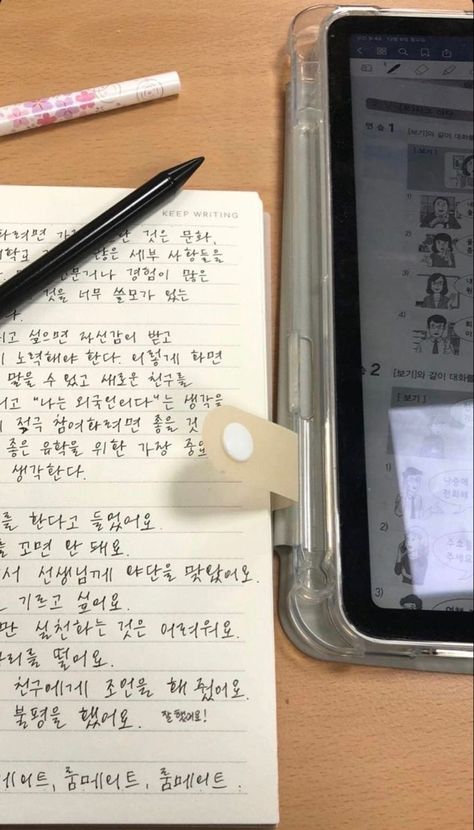 KEEP WRITING
하려면 것은 문화,
많은 세부 사항들을
경험이 많은
것을 너무 쓸모가 있는
다.
고 싶으면 자신감이 받고
노력해야 한다. 이렇게 하면
말을 수 있고 새로운 친구를
고 "나는 외국인이다"는 생각을
적극 참여하려면 좋을 것
좋은 유학을 위한 가장 중요
생각한다.
를 한다고 들었어요.
를 꼬면 안 돼요.
서 선생님께 야단을 맞았어요.
기르고 싶어요.
만 실천하는 것은 어려워요.
다리를 떨어요.
친구에게 조언을 해 줬어요.
불평을 했어요. 잘했어요!
메이트, 룸메이트, 룸메이트.
연습 1 [보기]와 같이 대화를
[보기]
2)
3)
4)
2 [보기]와 같이 대화를
[보기]
나중에
전화해
2)
주소를
주세요
3)